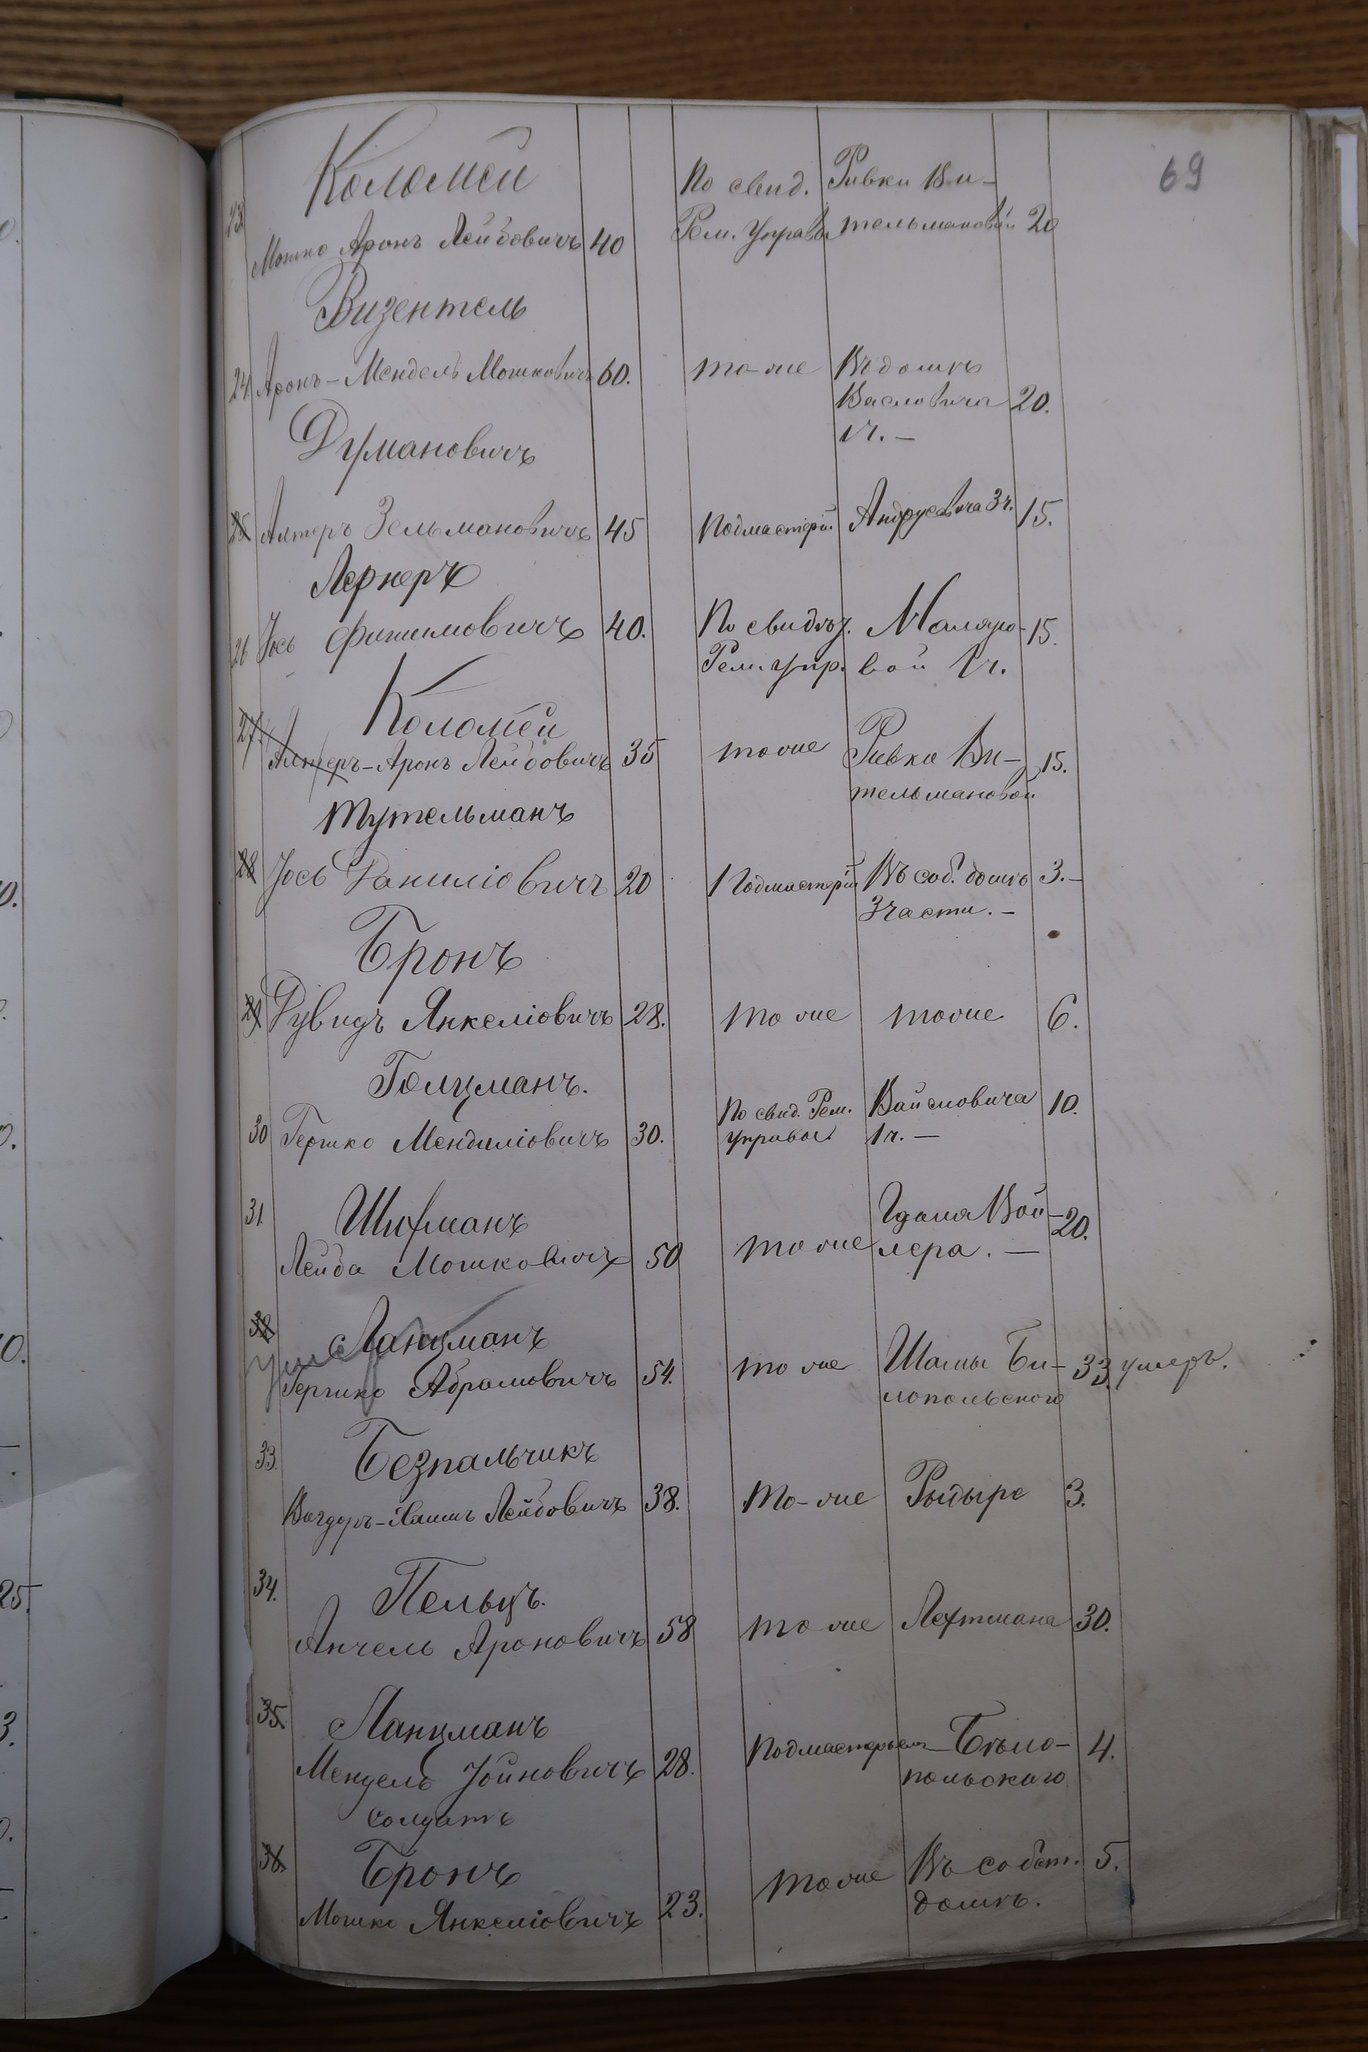 69
Коломей
По свид. Ривки Ви-
23 Мошко Аронъ Лейбовичъ 40 Рем. Управы тельмановой 20
Визентель
24 Аронъ-Мендель Мошковичъ 60. то-же Въ домѣ
Васловича 20.
1 ч. -
Думановичъ
25 Алтеръ Зельмановичъ 45 Подмастерій Андрусевича 3 ч. 15.
Лернеръ
26 Іось Фишимовичъ 40. По свидѣт. Маляро- 15.
Рем. упр. вой 1 ч.
Коломей
27. Алтеръ-Аронъ Лейбовичъ 35 тоже Ривки Ви- 15.
тельмановой
Тутельманъ
28 Іось Даниліовичъ 20 Подмастерій Въ соб. домѣ 3.-
3 части. -
Бронъ
29 Дувидъ Янкеліовичъ 28. тоже тоже 6.
Голцманъ.
30 Гершко Мендиліовичъ 30. По свид. Рем. Вайсмовича 10.
управы 1 ч. -
31. Шифманъ
Лейба Мошковичъ 50 тоже Гдаля Вой- 20.
лера. -
32 Ланцманъ
умеръ
Гершко Абрамовичъ 54. тоже Шамы Би- 33. умеръ.
лопольского
33. Безпальчикъ
Лейбовичъ 38. то-же 3.
34. Пельцъ.
Анчель Ароновичъ 58 тоже Лехтмана 30.
35. Ланцманъ
Мендель Іойновичъ 28. Подмастерьемъ Бѣло- 4.
польскаго
солдатъ
36. Бронъ
Мошко Янкеліовичъ 23. тоже Въ собст. 5.
домѣ.